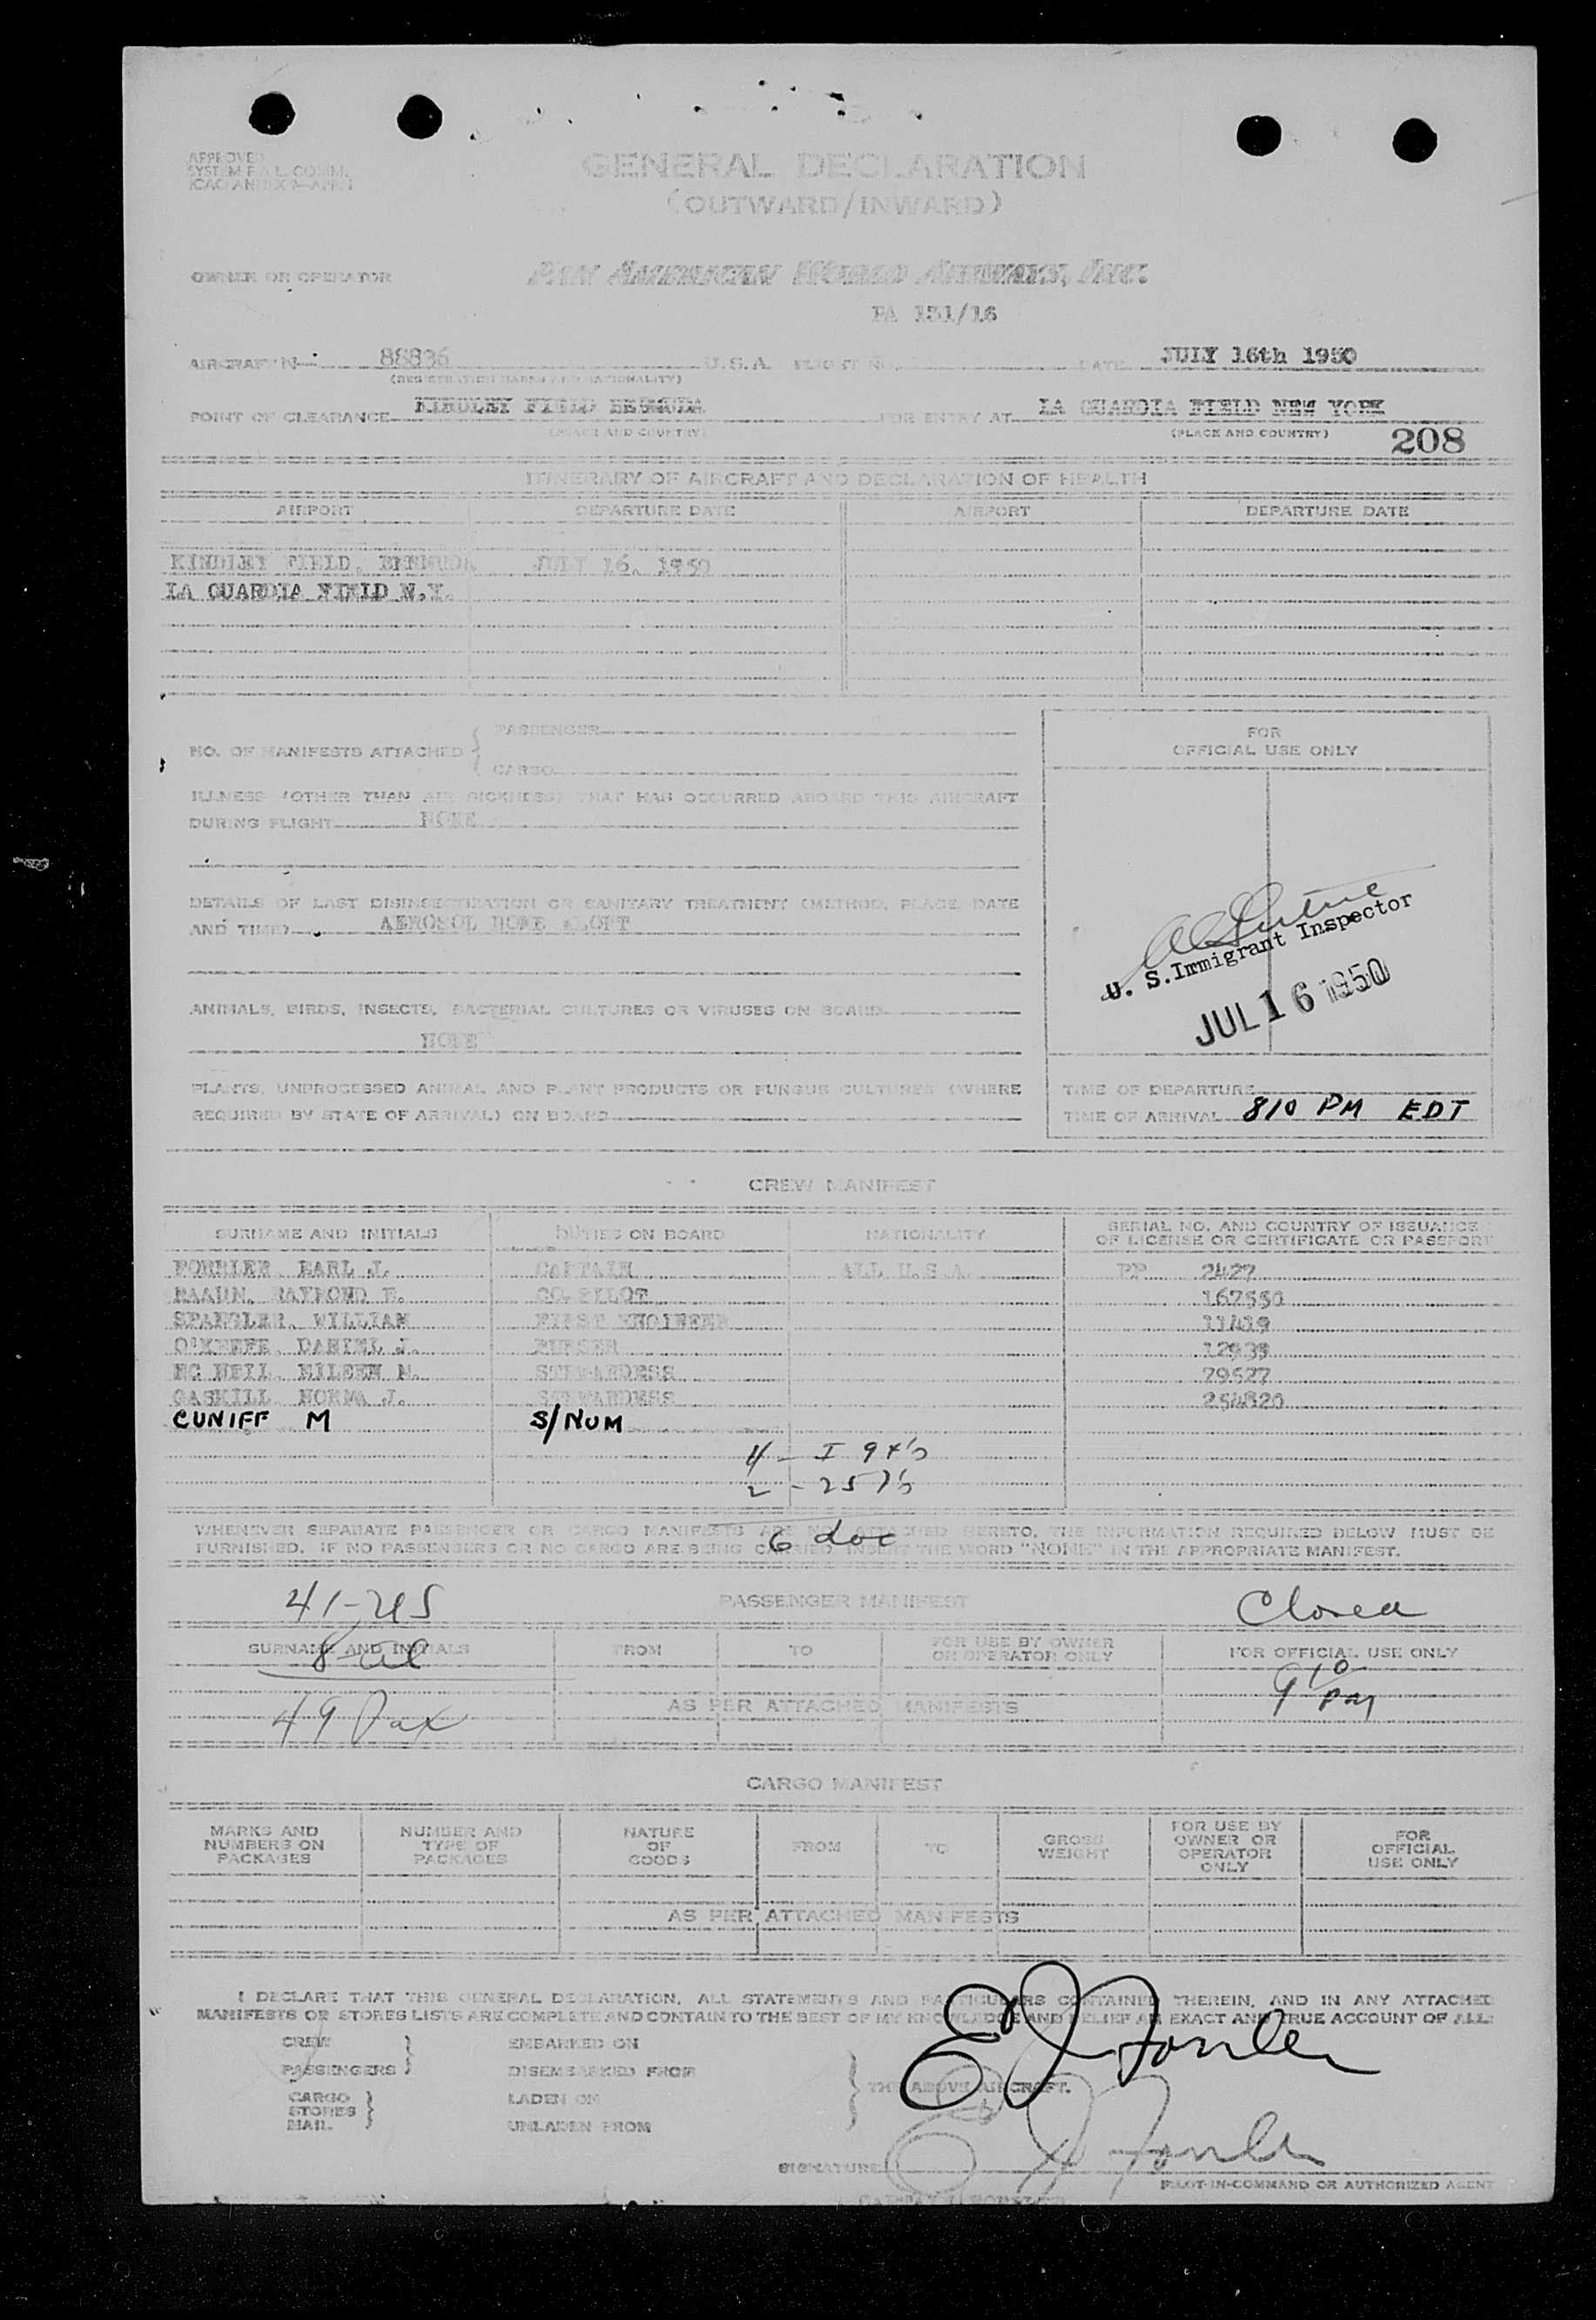 APPROVED
SYSTEM F.A.L. COMM.
ICAO ANNEX 9—APP.
GENERAL DECLARATION
(OUTWARD/INWARD)
OWNER OR OPERATOR PAN AMERICAN WORLD AIRWAYS, INC.
PA 131/16
AIRCRAFT N- 88836 U.S.A. FLIGHT NO. DATE JULY 16th 1950
(REGISTRATION MARKS AND NATIONALITY)
POINT OF CLEARANCE KINDLEY FIELD BERMUDA FOR ENTRY AT LA GUARDIA FIELD NEW YORK
(PLACE AND COUNTRY) (PLACE AND COUNTRY)
208
ITINERARY OF AIRCRAFT AND DECLARATION OF HEALTH
AIRPORT DEPARTURE DATE AIRPORT DEPARTURE DATE
KINDLEY FIELD, BERMUDA JULY 16, 1950
LA GUARDIA FIELD N.Y.
NO. OF MANIFESTS ATTACHED { PASSENGER
CARGO
FOR
OFFICIAL USE ONLY
ILLNESS (OTHER THAN AIR SICKNESS) THAT HAS OCCURRED ABOARD THIS AIRCRAFT
DURING FLIGHT NONE
DETAILS OF LAST DISINSECTIZATION OR SANITARY TREATMENT (METHOD, PLACE, DATE
AND TIME) AEROSOL BOMB ALOFT
U. S. Immigrant Inspector
JUL 16 1950
ANIMALS, BIRDS, INSECTS, BACTERIAL CULTURES OR VIRUSES ON BOARD
NONE
PLANTS, UNPROCESSED ANIMAL AND PLANT PRODUCTS OR FUNGUS CULTURES (WHERE
REQUIRED BY STATE OF ARRIVAL) ON BOARD
TIME OF DEPARTURE
TIME OF ARRIVAL 810 PM EDT
CREW MANIFEST
SURNAME AND INITIALS DUTIES ON BOARD NATIONALITY SERIAL NO. AND COUNTRY OF ISSUANCE
OF LICENSE OR CERTIFICATE OR PASSPORT
EARL J. CAPTAIN ALL U.S.A. PP 2427
RAYMOND CO. PILOT 167550
SPANGLER, WILLIAM FIRST ENGINEER 11419
O'KEEFE, DANIEL J. PURSER
MC NEIL, EILEEN M. STEWARDESS 79527
GASKILL NORMA J. STEWARDESS 254820
CUNIFF M S/NUM
4 - I
2 - 257's
6 doc
WHENEVER SEPARATE PASSENGER OR CARGO MANIFESTS ARE NOT ATTACHED HERETO, THE INFORMATION REQUIRED BELOW MUST BE
FURNISHED. IF NO PASSENGERS OR NO CARGO ARE BEING CARRIED, INSERT THE WORD "NONE" IN THE APPROPRIATE MANIFEST.
41-US PASSENGER MANIFEST Closed
SURNAME AND INITIALS FROM TO FOR USE BY OWNER
OR OPERATOR ONLY FOR OFFICIAL USE ONLY
8-al
910 PM
49 Pax AS PER ATTACHED MANIFESTS
CARGO MANIFEST
MARKS AND
NUMBERS ON
PACKAGES NUMBER AND
TYPE OF
PACKAGES NATURE
OF
GOODS FROM TO GROSS
WEIGHT FOR USE BY
OWNER OR
OPERATOR
ONLY FOR
OFFICIAL
USE ONLY
AS PER ATTACHED MANIFESTS
I DECLARE THAT THIS GENERAL DECLARATION, ALL STATEMENTS AND PARTICULARS CONTAINED THEREIN, AND IN ANY ATTACHED
MANIFESTS OR STORES LISTS ARE COMPLETE AND CONTAIN TO THE BEST OF MY KNOWLEDGE AND BELIEF AN EXACT AND TRUE ACCOUNT OF ALL:
CREW } EMBARKED ON
PASSENGERS DISEMBARKED FROM
CARGO } LADEN ON } THE ABOVE AIRCRAFT.
STORES
MAIL UNLADEN FROM
SIGNATURE
PILOT-IN-COMMAND OR AUTHORIZED AGENT